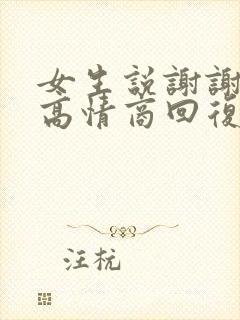 女生説謝謝
高情商回復
汪杬